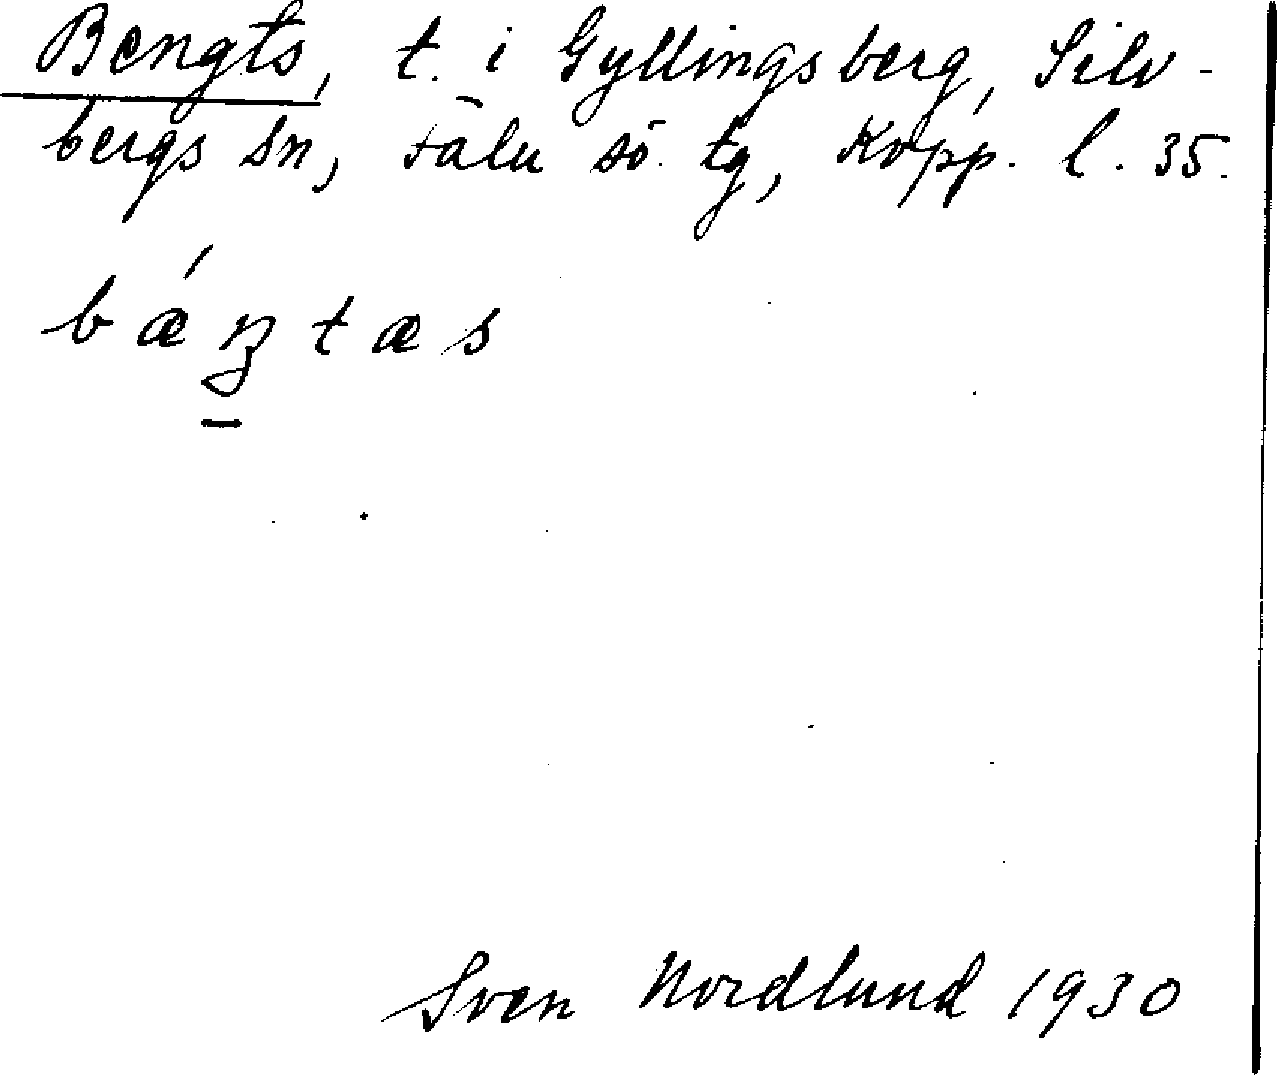 Bengts, t. i Gyllingsberg, Silv-
bergs sn, Falu sö. tg, Kopp. l. 35.
bǽŋtæs
Sven Nordlund 1930